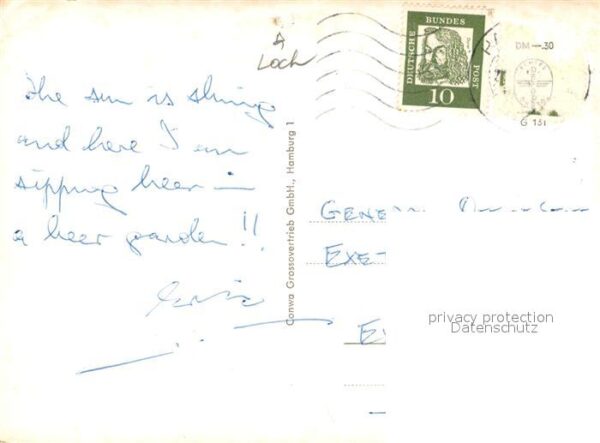 A
Loch
DEUTSCHE
BUNDES
POST
Dürer
10
DM -.30
G 131
The sun is shining
and here I am
sipping beer in
a beer garden!!
Conwa Grossovertrieb GmbH., Hamburg 1
GENE
EXE-
E
privacy protection
Datenschutz